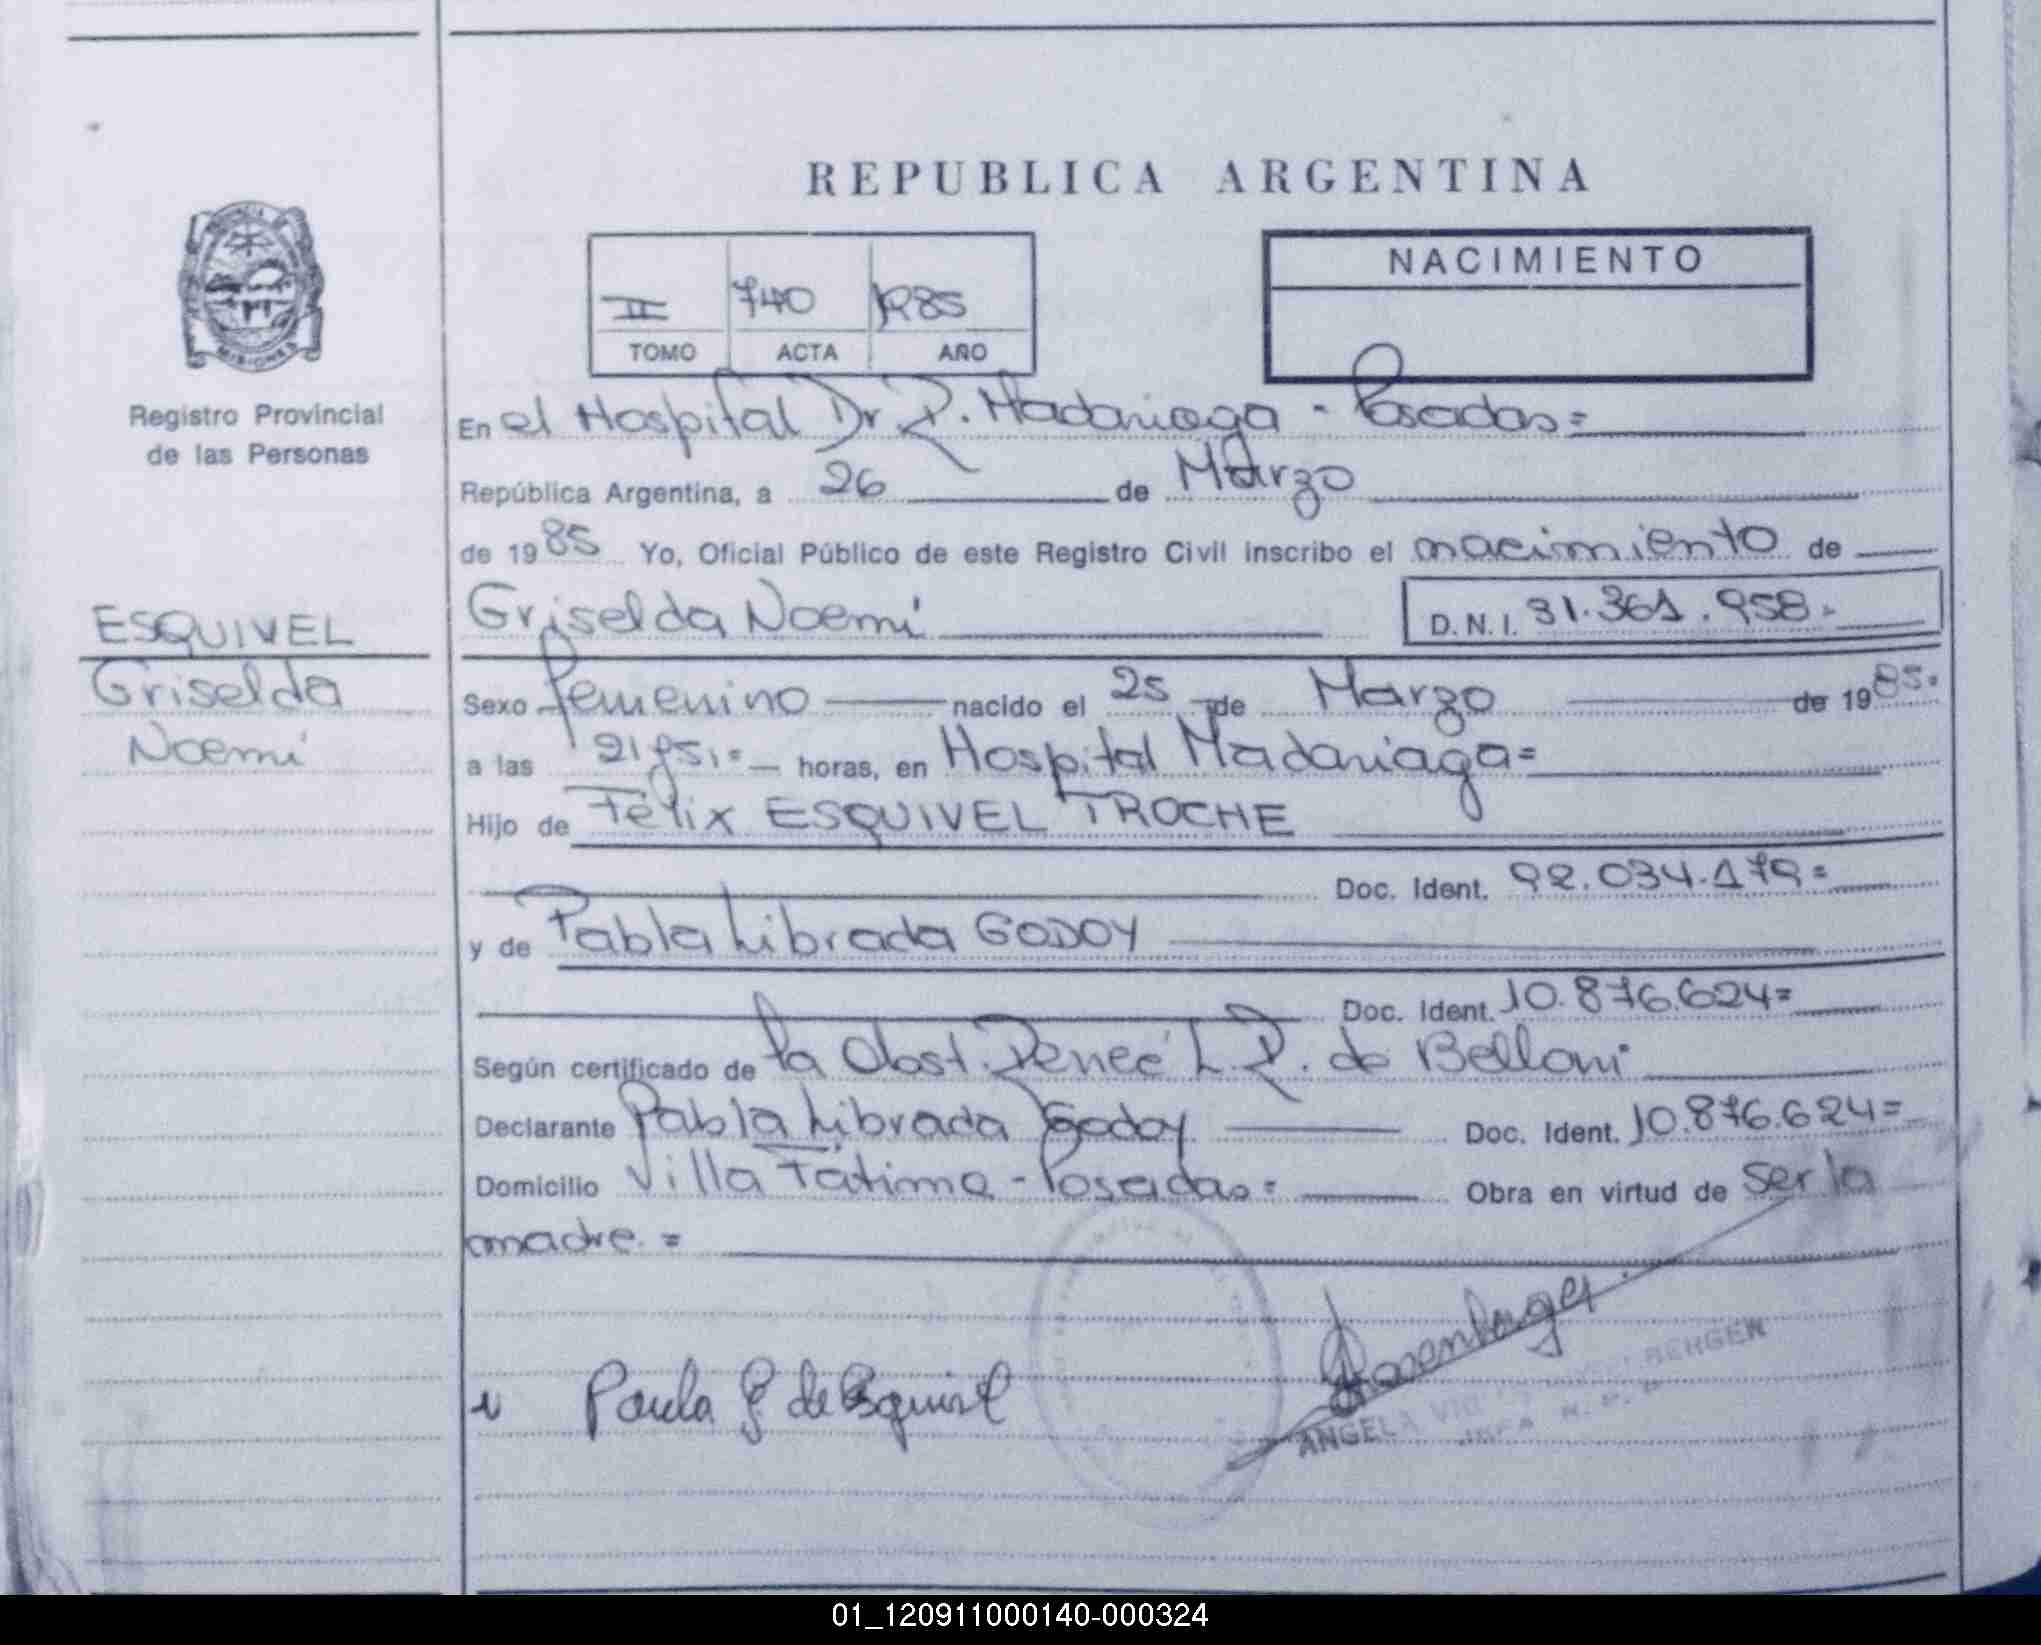 REPUBLICA ARGENTINA
II 740 1985
TOMO ACTA AÑO
NACIMIENTO
MISIONES
Registro Provincial
de las Personas
ESQUIVEL
Griselda
Noemí
En el Hospital Dr R. Madariaga - Posadas=
República Argentina, a 26 de Marzo
de 1985 Yo, Oficial Público de este Registro Civil inscribo el nacimiento de
Griselda Noemí D.N.I. 31.361.958.
Sexo femenino nacido el 25 de Marzo de 1985.
a las horas, en Hospital Madariaga=
Hijo de Félix ESQUIVEL TROCHE
Doc. Ident. 92.034.179=
y de Pabla Librada GODOY
Doc. Ident. 10.876.624=
Según certificado de la Obst. Reneé L. R. de Belloni
Declarante Pabla Librada Godoy Doc. Ident. 10.876.624=
Domicilio Villa Fátima - Posadas= Obra en virtud de ser la
madre.=
Paula G de Esquivel
ANGELA
01_120911000140-000324